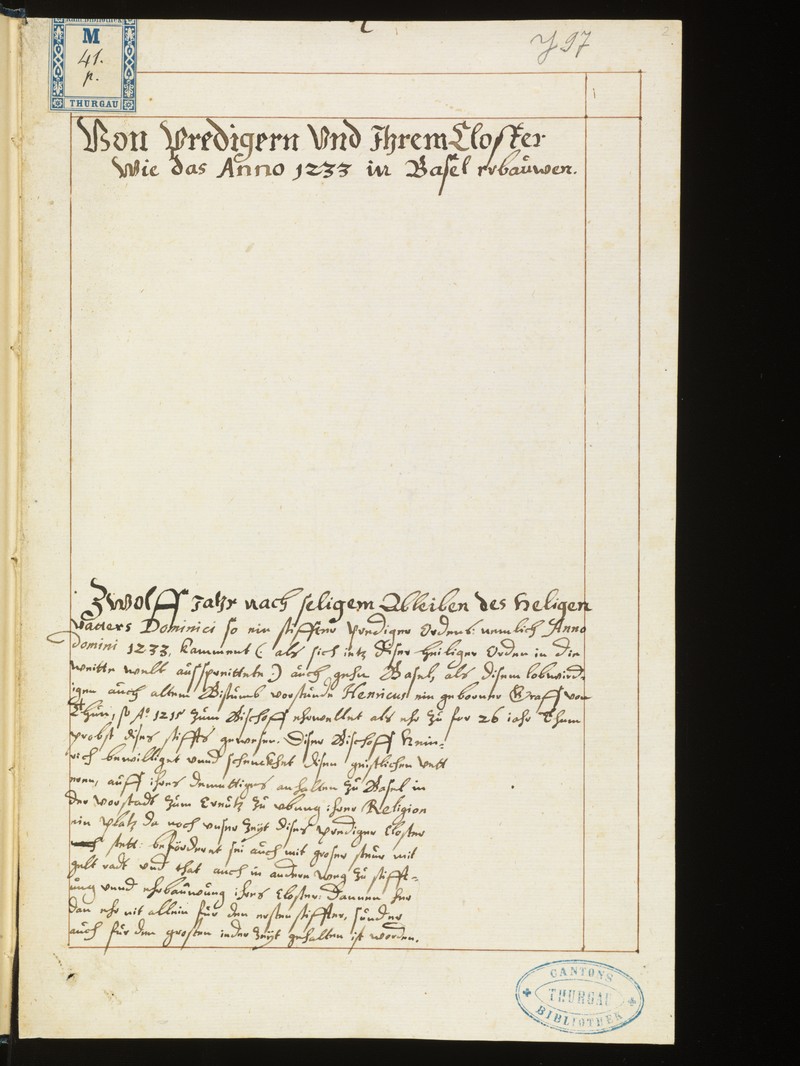 Kantonsbibliothek
M
41.
p.
THURGAU
Y 97
2
1
Von Predigern Vnd Ihrem Closter
Wie das Anno 1233 in Basel erbauwen.
Zwolff Jahr nach seligem Ableiben des Heligen
Vatters Dominici so ein stiffter Prediger Ordens: nemlich Anno
Domini 1233, kamment (: als sich ietz diser heiliger Orden in die
weitte welt aufspreittete :) auch gehn Basel, als disem lobwird-
igen auch altem Bistumb vorstunde Henricus ein geborner Graff von
Thun, so Aº 1215 zum Bischoff erwellet als ehr zu for 26 iahr Thum
probst dises stiffts gewesen. Diser Bischoff Hein-
rich bewilliget vnnd schenckhet disen geistlichen Vett
eren, auff ihres demuttiges anhalten zu Basel in
der vorstadt zum Creutz zu vbung ihrer Religion
ein platz da noch vnser Zeyt dises prediger Closter
stett: beförderet sei auch mit groser steur mit
gelt radt vnd that auch in andere weg zu stifft-
ung vnnd ehrbauwung ihres Closter: Dannen her
dan ehr nit allein fur den ersten stiffter, sunder
auch fur den grosten in der Zeyt gehalten ist worden.
CANTONS
THURGAU
BIBLIOTHEK